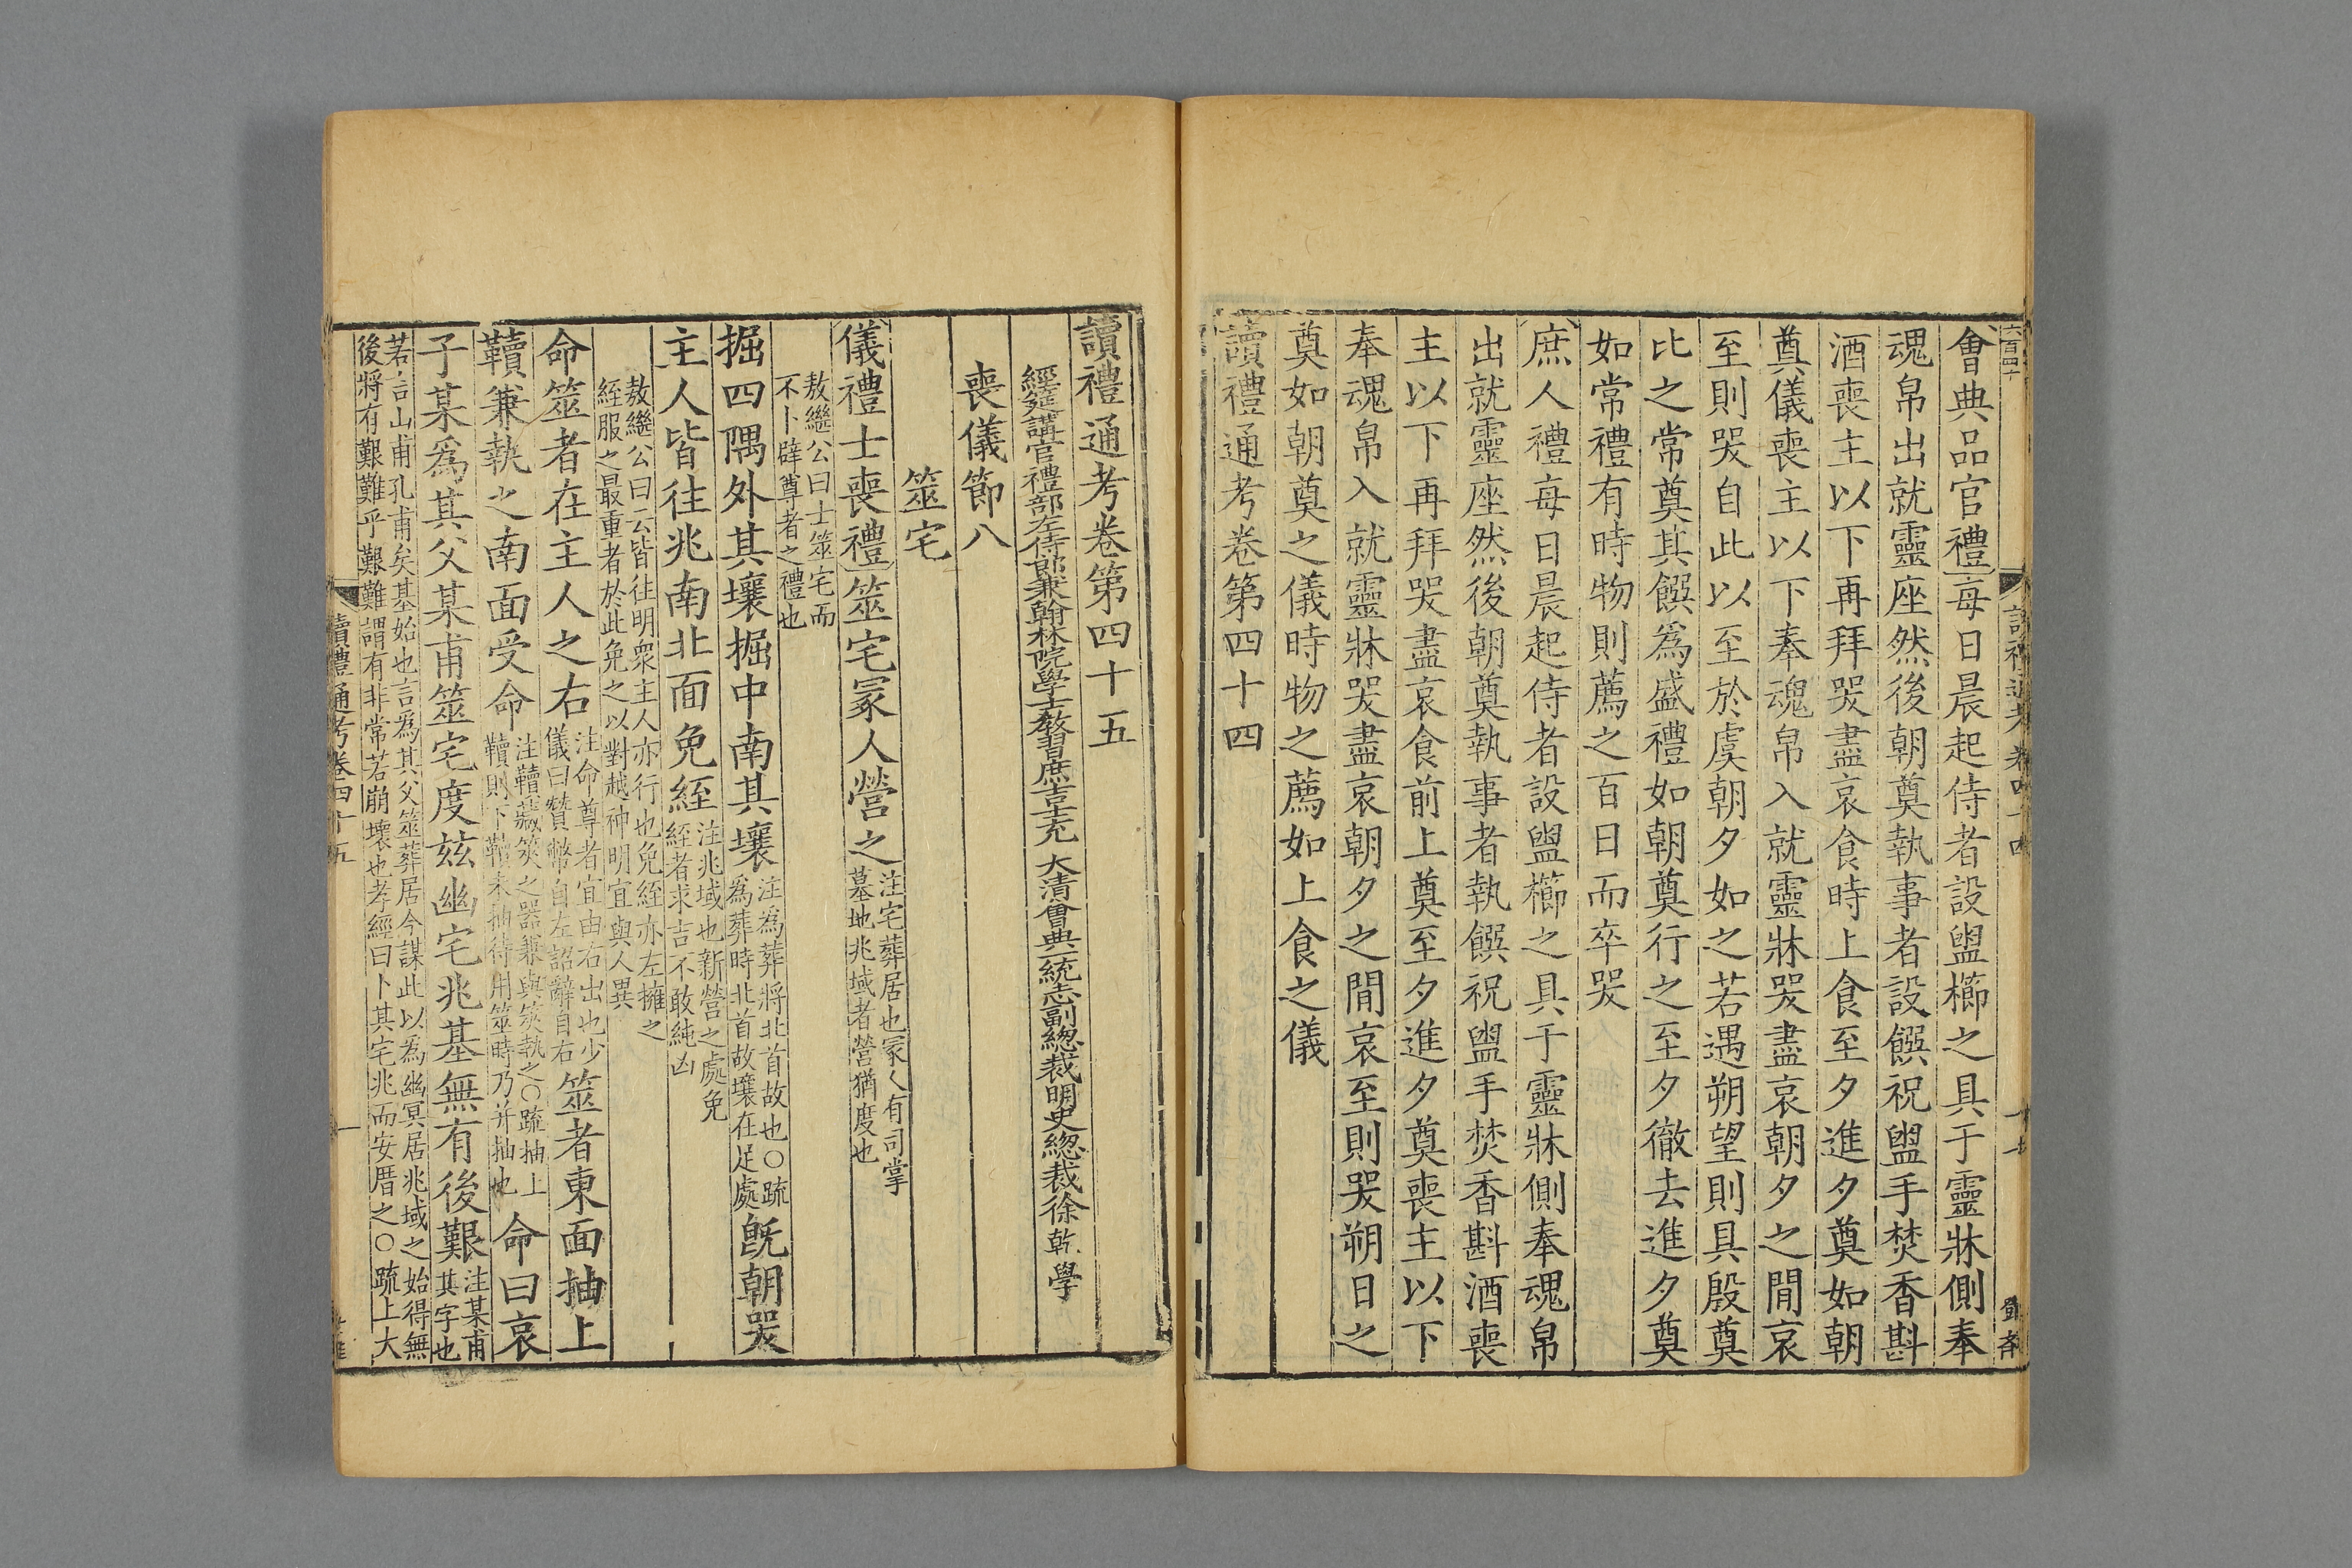 會典品官禮每日晨起侍者設盥櫛之具于靈牀側奉
魂帛出就靈座然後朝奠執事者設饌祝盥手焚香斟
酒喪主以下再拜哭盡哀食時上食至夕進夕奠如朝
奠儀喪主以下奉魂帛入就靈牀哭盡哀朝夕之閒哀
至則哭自此以至於虞朝夕如之若遇朔望則具殷奠
比之常奠其饌爲盛禮如朝奠行之至夕徹去進夕奠
如常禮有時物則薦之百日而卒哭
庶人禮每日晨起侍者設盥櫛之具于靈牀側奉魂帛
出就靈座然後朝奠執事者執饌祝盥手焚香斟酒喪
主以下再拜哭盡哀食前上奠至夕進夕奠喪主以下
奉魂帛入就靈牀哭盡哀朝夕之閒哀至則哭朔日之
奠如朝奠之儀時物之薦如上食之儀
讀禮通考卷第四十四
讀禮通考卷第四十五
經筵講官禮部左侍郎兼翰林院學士教習庶吉士充 大清會典一統志副總裁明史總裁徐乾學
喪儀節八
筮宅
儀禮士喪禮筮宅冢人營之注宅葬居也冢人有司掌
墓地兆域者營猶度也
敖繼公曰士筮宅而
不卜辟尊者之禮也
掘四隅外其壤掘中南其壤注爲葬將北首故也○疏
爲葬時北首故壤在足處既朝哭
主人皆往兆南北面免絰注兆域也新營之處免
絰者求吉不敢純凶
敖繼公曰云皆往明衆主人亦行也免絰亦左擁之
絰服之最重者於此免之以對越神明宜與人異
命筮者在主人之右注命尊者宜由右出也少
儀曰贊幣自左詔辭自右筮者東面抽上
韇兼執之南面受命注韇藏筴之器兼與筴執之○疏抽上
韇則下韇未抽待用筮時乃并抽也命曰哀
子某爲其父某甫筮宅度茲幽宅兆基無有後艱注某甫
其字也
若言山甫孔甫矣基始也言爲其父筮葬居今謀此以爲幽冥居兆域之始得無
後將有艱難乎艱難謂有非常若崩壞也孝經曰卜其宅兆而安厝之○疏上大
讀禮通考卷四十五
一